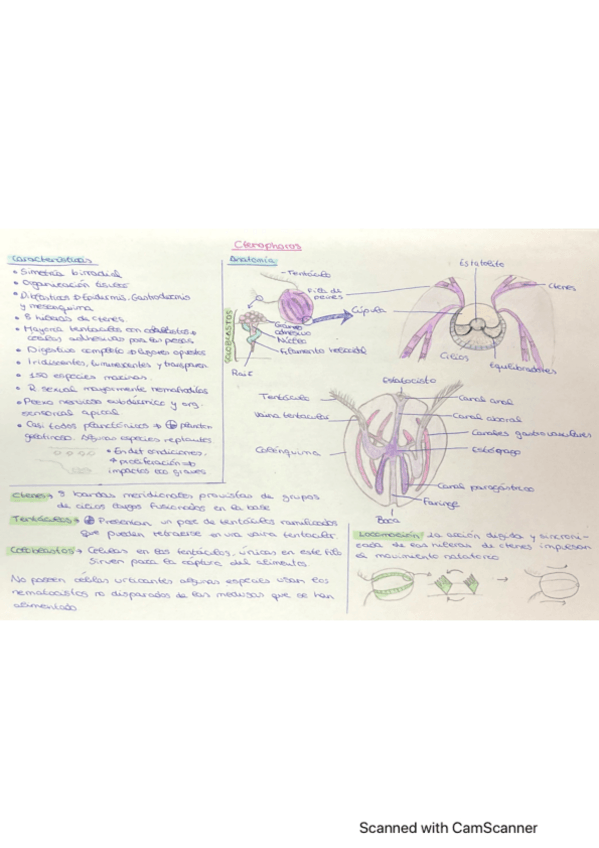 Ctenophoros
Características
• Simetría birradial
• Organización tisular
• Diblásticos → Epidermis, Gastrodermis
y mesénquima
• 8 hileras de ctenes
• Mayoría tentáculos con coloblastos →
células adhesivas para las presas
• Digestivo completo →
• Iridiscentes, luminescentes y transparen
• 150 especies marinas.
• R. sexual mayormente hermafroditas
• Plexo nervioso subdérmico y org.
sensorial apical
• Casi todos planctónicos → plancton
gelatinoso. Algunas especies reptantes.
• En det condiciones,
↑ proliferación →
impactos eco graves
Anatomía
Tentáculo
Fila de
peines
COLOBLASTOS
Gránulo
adhesivo
Núcleo
Filamento helicoidal
Raíz
Estatolito
Ctenes
Cúpula
Cilios
Equilibradores
Estatocisto
Tentáculo
Canal anal
Vaina tentacular
Canal aboral
Canales gastrovasculares
Colénquima
Esófago
Canal paragástrico
Faringe
Boca
Ctenes → 8 bandas meridionales provistas de grupos
de cilios largos fusionados en la base
Tentáculos → Presentan un par de tentáculos ramificados
que pueden retraerse en una vaina tentacular.
Coloblastos → Células en los tentáculos, únicas en este filo
Sirven para la captura del alimento
No poseen células urticantes algunas especies usan los
nematocistos no disparados de las medusas que se han
alimentado
Locomoción: la acción dirigida y sincroni-
zada de las hileras de ctenes impulsan
el movimiento natatorio
Scanned with CamScanner